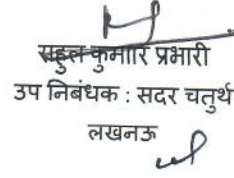 राहुल कुमार प्रभारी
उप निबंधक : सदर चतुर्थ
लखनऊ